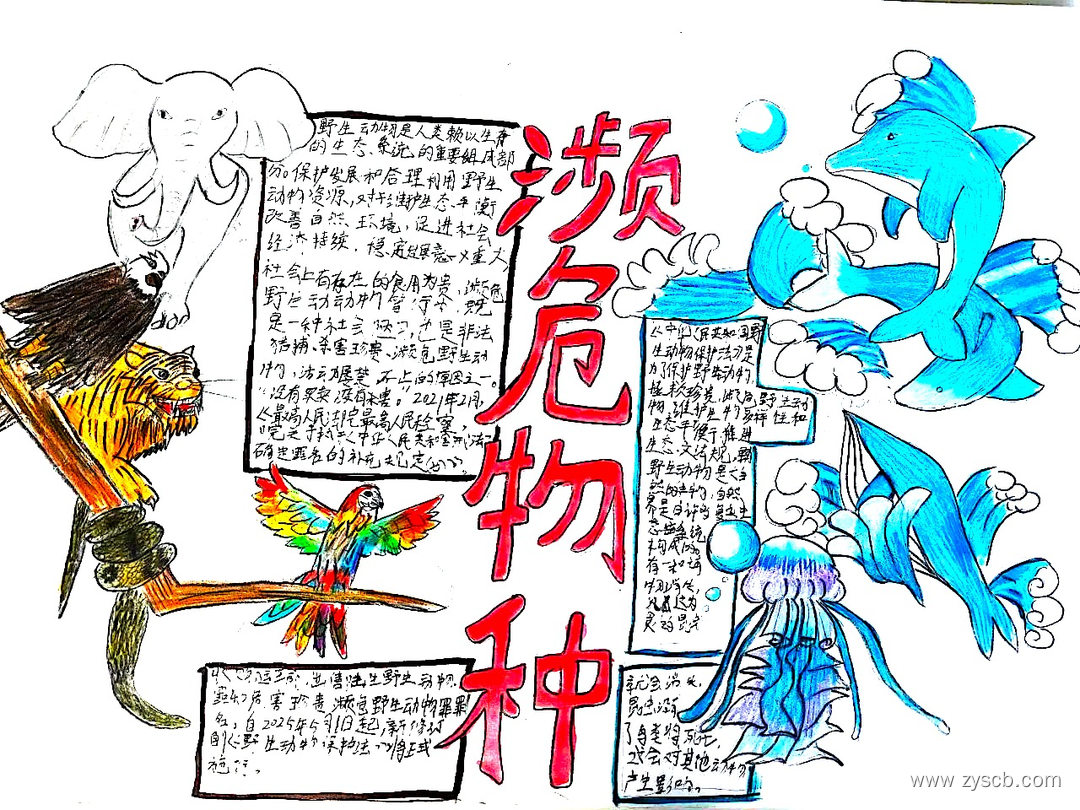 濒危物种
野生动物是人类赖以生存
的生态系统的重要组成部
分。保护发展和合理利用野生
动物资源,对于维护生态平衡
改善自然环境,促进社会
经济持续、稳定发展意义重大
社会上有存在的食用为贵、濒危
野生动动物
是一种社会 也是非法
猎捕、杀害珍贵、濒危野生动
物,活动屡禁不止的原因之一。
“没有买卖没有杀害。”2021年2月,
《最高人民法院最高人民检察
院关于执行《中华人民共和国刑法》
确定罪名的补充规定(七)》
收购运输、出售 野生动物
危害珍贵、濒危野生动物罪罪
名,自2025年5月1日起,新修订
的《野生动物保护法》将正式
施行。
《中华人民共和国野
生动物保护法》是
为了保护野生动物,
拯救珍贵、濒危野生动
物,维护生物多样性和
生态平衡,推进
生态文
野生动物是大自
然的产物,自然
界是由许多复杂生
态系统
构成的。
有一种
物消失,
就会消失
昆虫没
了鸟类将死亡
还会对其他动物
产生影响。
www.zyscb.com